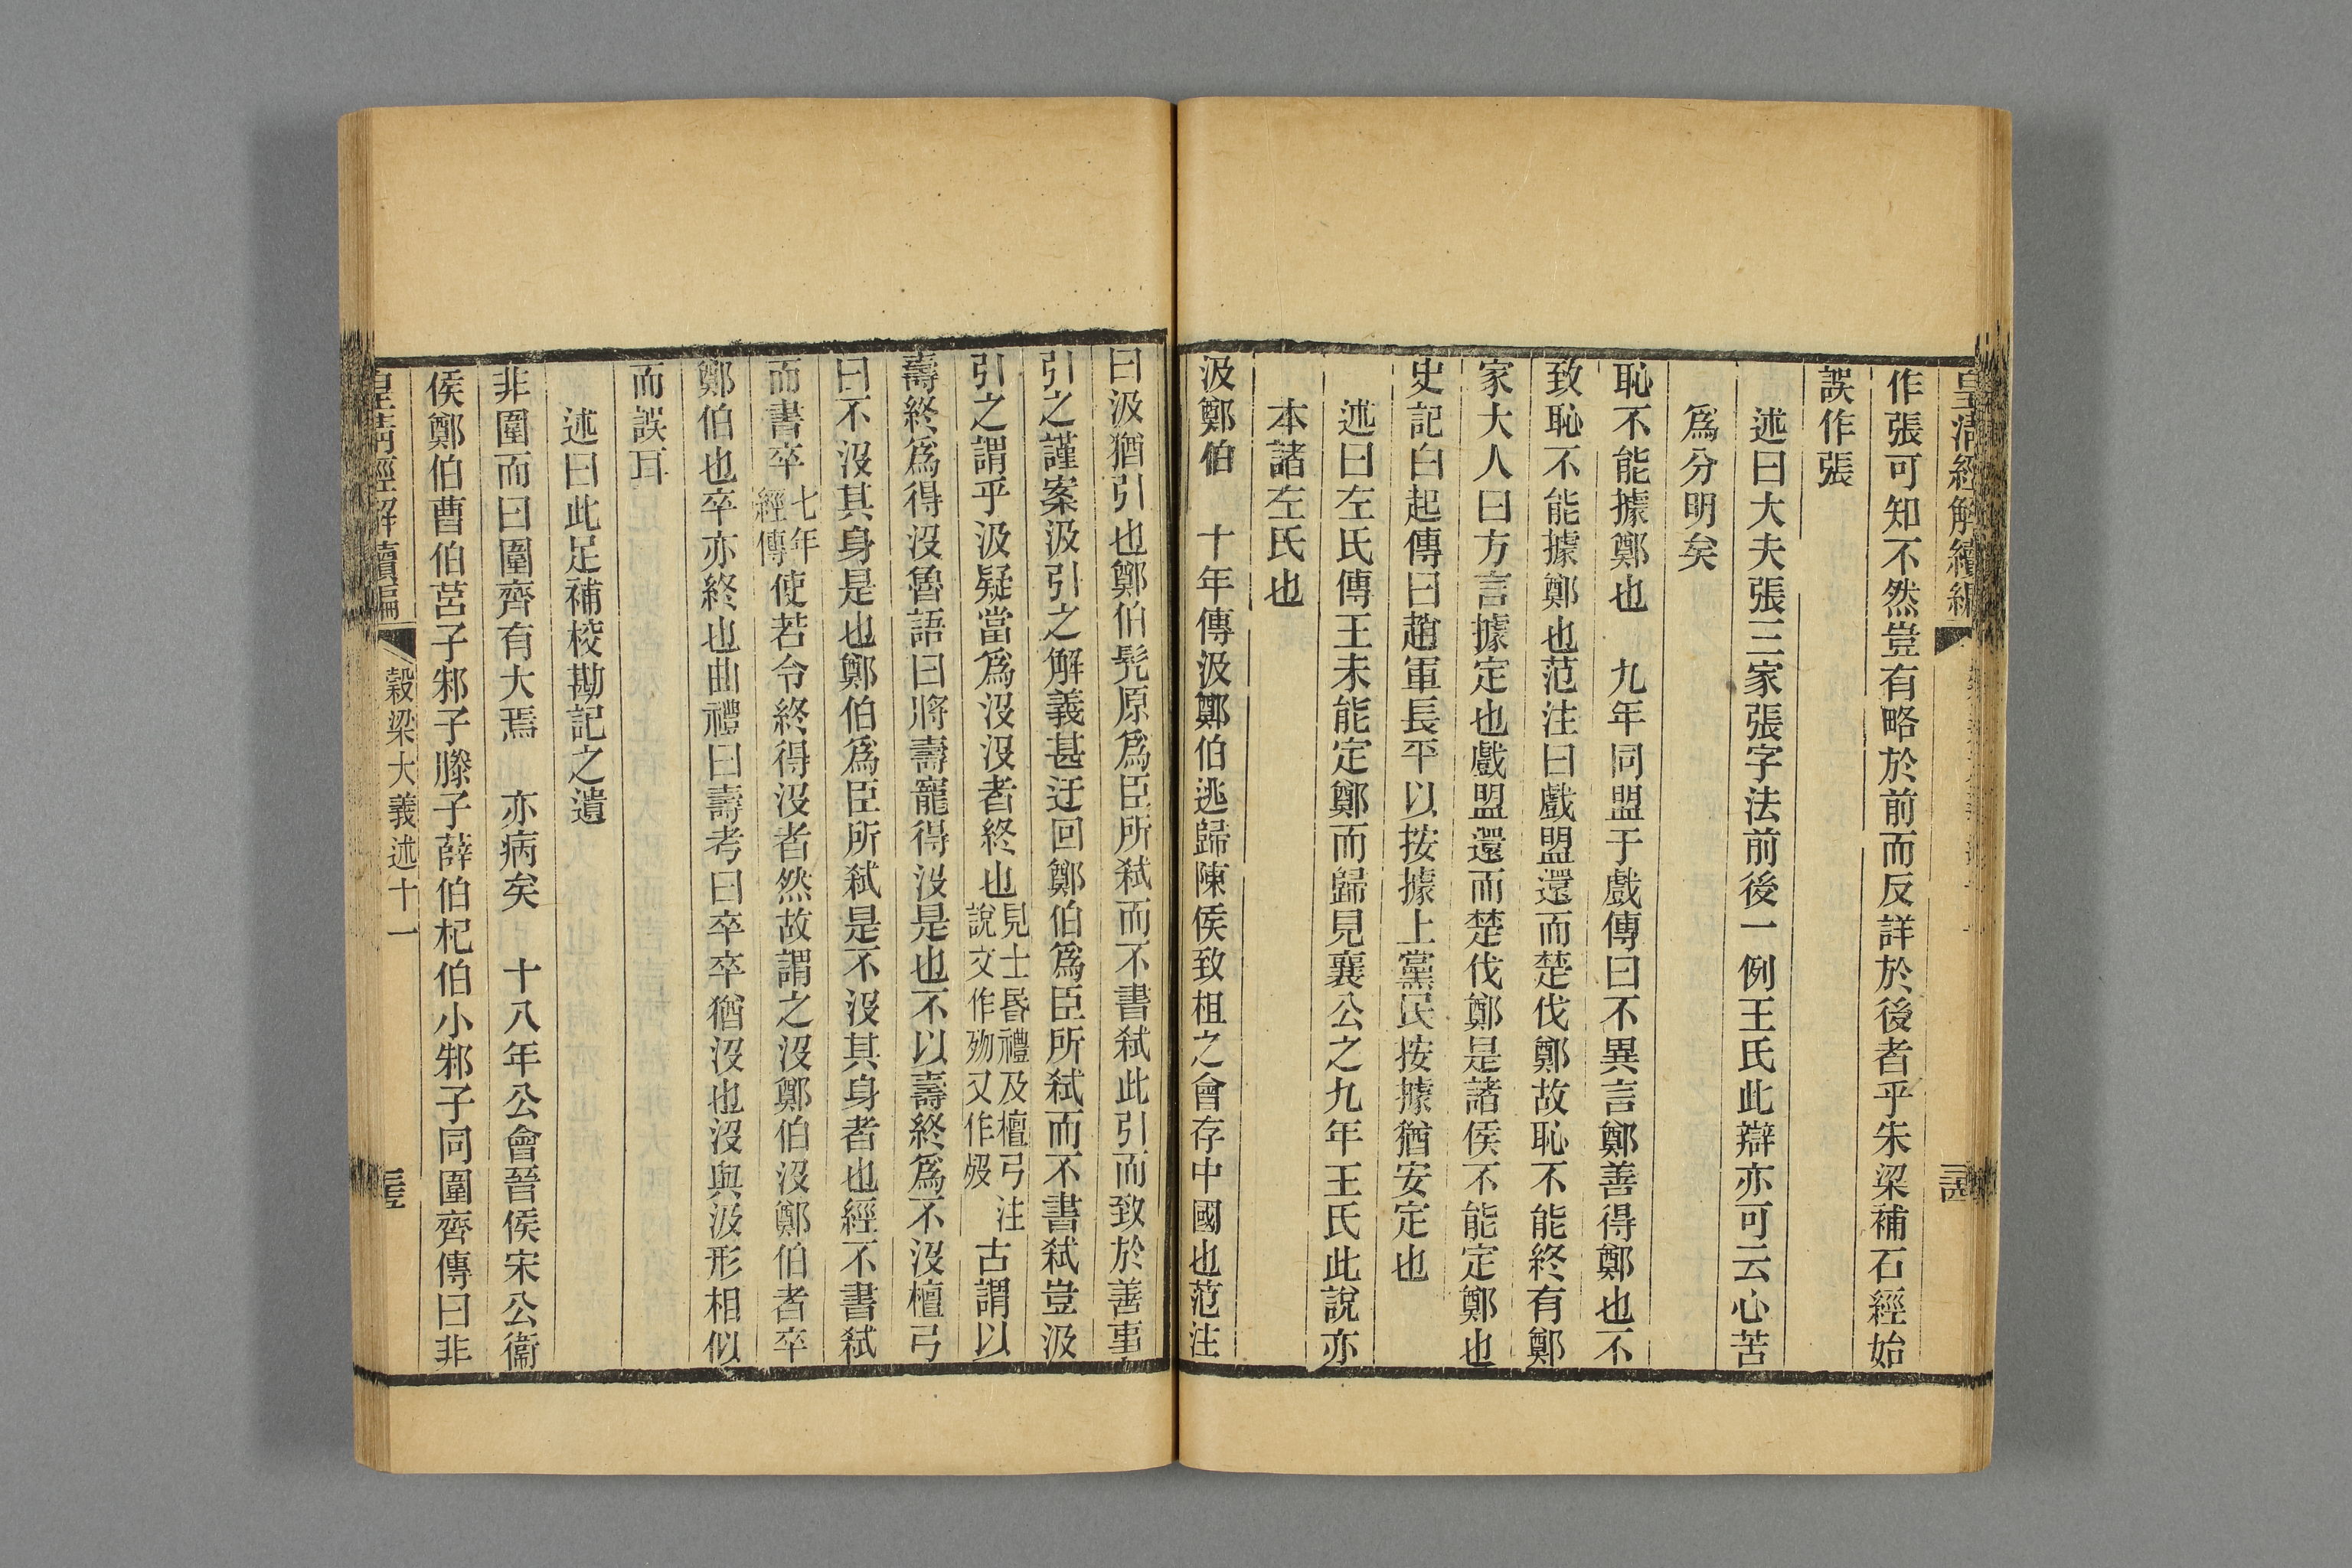 皇清經解續編
作張可知不然豈有略於前而反詳於後者乎朱梁補石經始
誤作張
述曰大夫張三家張字法前後一例王氏此辯亦可云心苦
爲分明矣
恥不能據鄭也　九年同盟于戲傳曰不異言鄭善得鄭也不
致恥不能據鄭也范注曰戲盟還而楚伐鄭故恥不能終有鄭
家大人曰方言據定也戲盟還而楚伐鄭是諸侯不能定鄭也
史記白起傳曰趙軍長平以按據上黨民按據猶安定也
述曰左氏傳王未能定鄭而歸見襄公之九年王氏此說亦
本諸左氏也
汲鄭伯　十年傳汲鄭伯逃歸陳侯致柤之會存中國也范注
曰汲猶引也鄭伯髡原爲臣所弑而不書弑此引而致於善事
引之謹案汲引之解義甚迂回鄭伯爲臣所弑而不書弑豈汲
引之謂乎汲疑當爲沒沒者終也見士昏禮及檀弓注說文作歾又作歿古謂以
壽終爲得沒魯語曰將壽寵得沒是也不以壽終爲不沒檀弓
曰不沒其身是也鄭伯爲臣所弑是不沒其身者也經不書弑
而書卒七年經傳使若令終得沒者然故謂之沒鄭伯沒鄭伯者卒
鄭伯也卒亦終也曲禮曰壽考曰卒卒猶沒也沒與汲形相似
而誤耳
述曰此足補校勘記之遺
非圍而曰圍齊有大焉　亦病矣　十八年公會晉侯宋公衞
侯鄭伯曹伯莒子邾子滕子薛伯杞伯小邾子同圍齊傳曰非
皇清經解續編　穀梁大義述十一